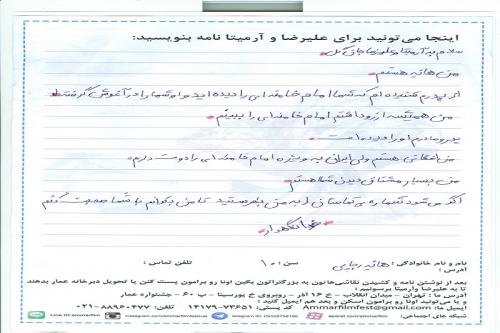 اینجا می‌تونید برای علیرضا و آرمیتا نامه بنویسید:
سلام به آرمیتا و علیرضا جان گل
من هانیه هستم
از پدرم شنیده ام که شما امام خامنه ای را دیده اید و او شما را در آغوش گرفته
من همیشه آرزو داشتم امام خامنه ای را ببینم
پدر و مادرم او را دیده است
من افغانی هستم ولی ایران به ویژه امام خامنه ای را دوست دارم
من بسیار مشتاق دیدن شما هستم
اگر می شود شماره ی تماستان را به من بفرستید تا من بتوانم با شما صحبت کنم
خدانگهدار
نام و نام خانوادگی: هانیه رجایی سن: ۱۰ تلفن تماس:
آدرس:
بعد از نوشتن نامه و کشیدن نقاشی‌هاتون به بزرگتراتون بگین اونا رو برامون پست کنن یا تحویل دبیرخانه عمار بدهند
تا به علیرضا وآرمیتا برسونیم:
آدرس ما: تهران - میدان انقلاب - خ ۱۶ آذر - روبروی خ پورسینا - پ ۶۰ - جشنواره عمار
و یا می‌تونید اونا رو برامون اسکن و بعد هم ایمیل کنید:
Ammarfilmfest@gmail.com کد پستی:
تلفن:
شبکه های اجتماعی: